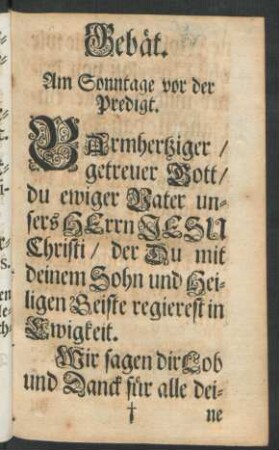 Gebät.
Am Sonntage vor der
Predigt.
BArmhertziger /
getreuer Gott /
du ewiger Vater un-
sers HErrn JESU
Christi / der Du mit
deinem Sohn und Hei-
ligen Geiste regierest in
Ewigkeit.
Wir sagen dir Lob
und Danck für alle dei-
† ne